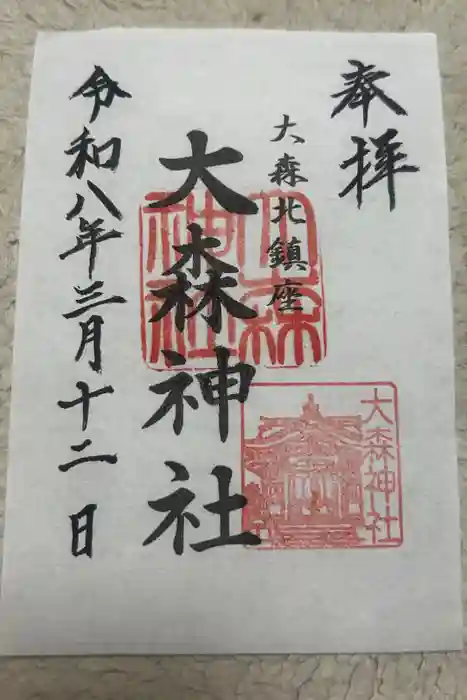 奉拝
大森北鎮座
大森神社
令和八年三月十二日
大森
神社
大森神社